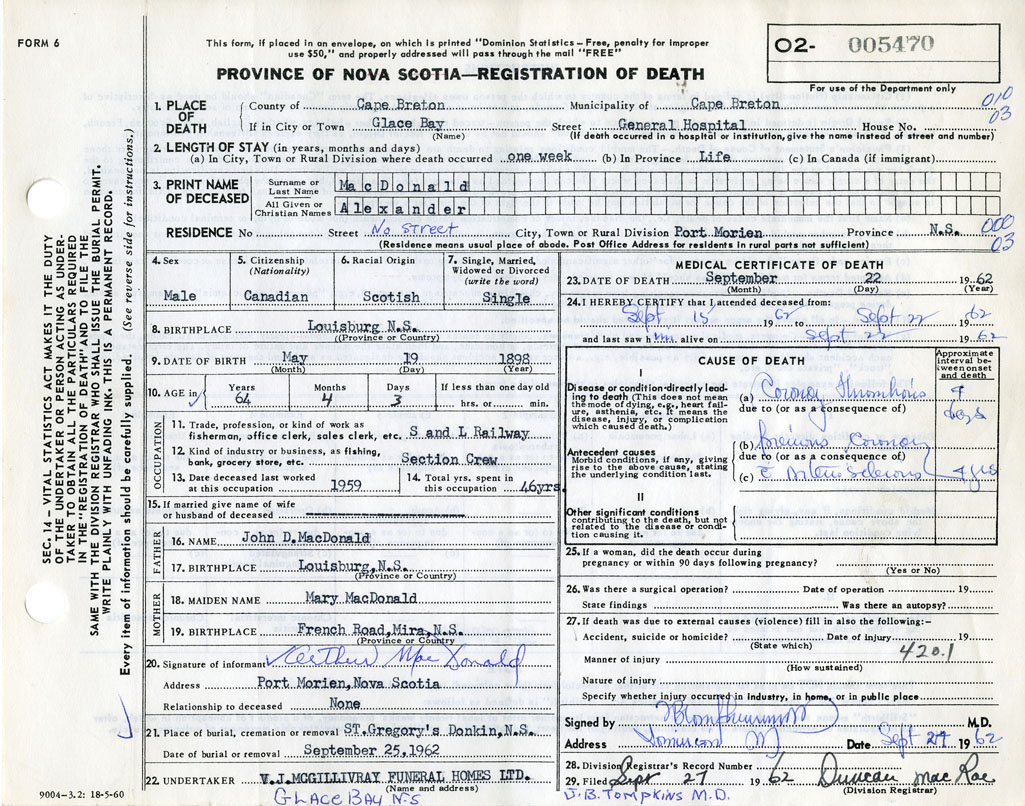 FORM 6
This form, if placed in an envelope, on which is printed "Dominion Statistics – Free, penalty for improper
use $50," and properly addressed will pass through the mail "FREE"
PROVINCE OF NOVA SCOTIA—REGISTRATION OF DEATH
02- 005470
For use of the Department only
SEC. 14 – VITAL STATISTICS ACT MAKES IT THE DUTY
OF THE UNDERTAKER OR PERSON ACTING AS UNDER-
TAKER TO OBTAIN ALL THE PARTICULARS REQUIRED
IN THE "REGISTRATION OF DEATH" AND TO FILE THE
SAME WITH THE DIVISION REGISTRAR WHO SHALL ISSUE THE BURIAL PERMIT.
WRITE PLAINLY WITH UNFADING INK. THIS IS A PERMANENT RECORD.
Every item of information should be carefully supplied. (See reverse side for instructions.)
1. PLACE OF DEATH
County of Cape Breton Municipality of Cape Breton 010
If in City or Town Glace Bay Street General Hospital House No. 03
(Name) (If death occurred in a hospital or institution, give the name instead of street and number)
2. LENGTH OF STAY (in years, months and days)
(a) In City, Town or Rural Division where death occurred one week (b) In Province Life (c) In Canada (if immigrant)
3. PRINT NAME OF DECEASED
Surname or Last Name MacDonald
All Given or Christian Names Alexander
RESIDENCE No Street No Street City, Town or Rural Division Port Morien Province N.S. 000
03
(Residence means usual place of abode. Post Office Address for residents in rural parts not sufficient)
4. Sex 5. Citizenship (Nationality) 6. Racial Origin 7. Single, Married, Widowed or Divorced (write the word)
Male Canadian Scotish Single
8. BIRTHPLACE Louisburg N.S.
(Province or Country)
9. DATE OF BIRTH May 19 1898
(Month) (Day) (Year)
10. AGE in Years Months Days If less than one day old
64 4 3 hrs. or min.
OCCUPATION
11. Trade, profession, or kind of work as
fisherman, office clerk, sales clerk, etc. S and L Railway
12. Kind of industry or business, as fishing,
bank, grocery store, etc. Section Crew
13. Date deceased last worked at this occupation 1959
14. Total yrs. spent in this occupation 46yrs.
15. If married give name of wife
or husband of deceased
FATHER
16. NAME John D,MacDonald
17. BIRTHPLACE Louisburg,N.S.
(Province or Country)
MOTHER
18. MAIDEN NAME Mary MacDonald
19. BIRTHPLACE French Road,Mira,N.S.
(Province or Country)
20. Signature of informant Arthur MacDonald
Address Port Morien,Nova Scotia
Relationship to deceased None
21. Place of burial, cremation or removal ST.Gregory's Donkin,N.S.
Date of burial or removal September 25,1962
22. UNDERTAKER W.J.MCGILLIVRAY FUNERAL HOMES LTD.
(Name and address)
GLACE BAY N.S
9004-3.2: 18-5-60
MEDICAL CERTIFICATE OF DEATH
23. DATE OF DEATH September 22 1962
(Month) (Day) (Year)
24. I HEREBY CERTIFY that I attended deceased from:
Sept 15 1962 to Sept 22 1962
and last saw him alive on Sept 22 1962
CAUSE OF DEATH
Approximate interval between onset and death
I
Disease or condition directly lead-
ing to death (This does not mean
the mode of dying, e.g., heart fail-
ure, asthenia, etc. It means the
disease, injury, or complication
which caused death.)
(a) Coronary Thrombosis
due to (or as a consequence of)
days
Antecedent causes
Morbid conditions, if any, giving
rise to the above cause, stating
the underlying condition last.
(b) Previous Coronary
due to (or as a consequence of)
(c) 4 yrs
II
Other significant conditions
contributing to the death, but not
related to the disease or condi-
tion causing it.
25. If a woman, did the death occur during
pregnancy or within 90 days following pregnancy?
(Yes or No)
26. Was there a surgical operation? Date of operation 19
State findings Was there an autopsy?
27. If death was due to external causes (violence) fill in also the following:–
Accident, suicide or homicide? Date of injury 19
(State which)
420.1
Manner of injury
(How sustained)
Nature of injury
Specify whether injury occurred in industry, in home, or in public place
Signed by M.D.
Address Date Sept 27 1962
28. Division Registrar's Record Number
29. Filed Sept 27 1962 Duncan MacRae
(Division Registrar)
J.B. TOMPKINS M.D.